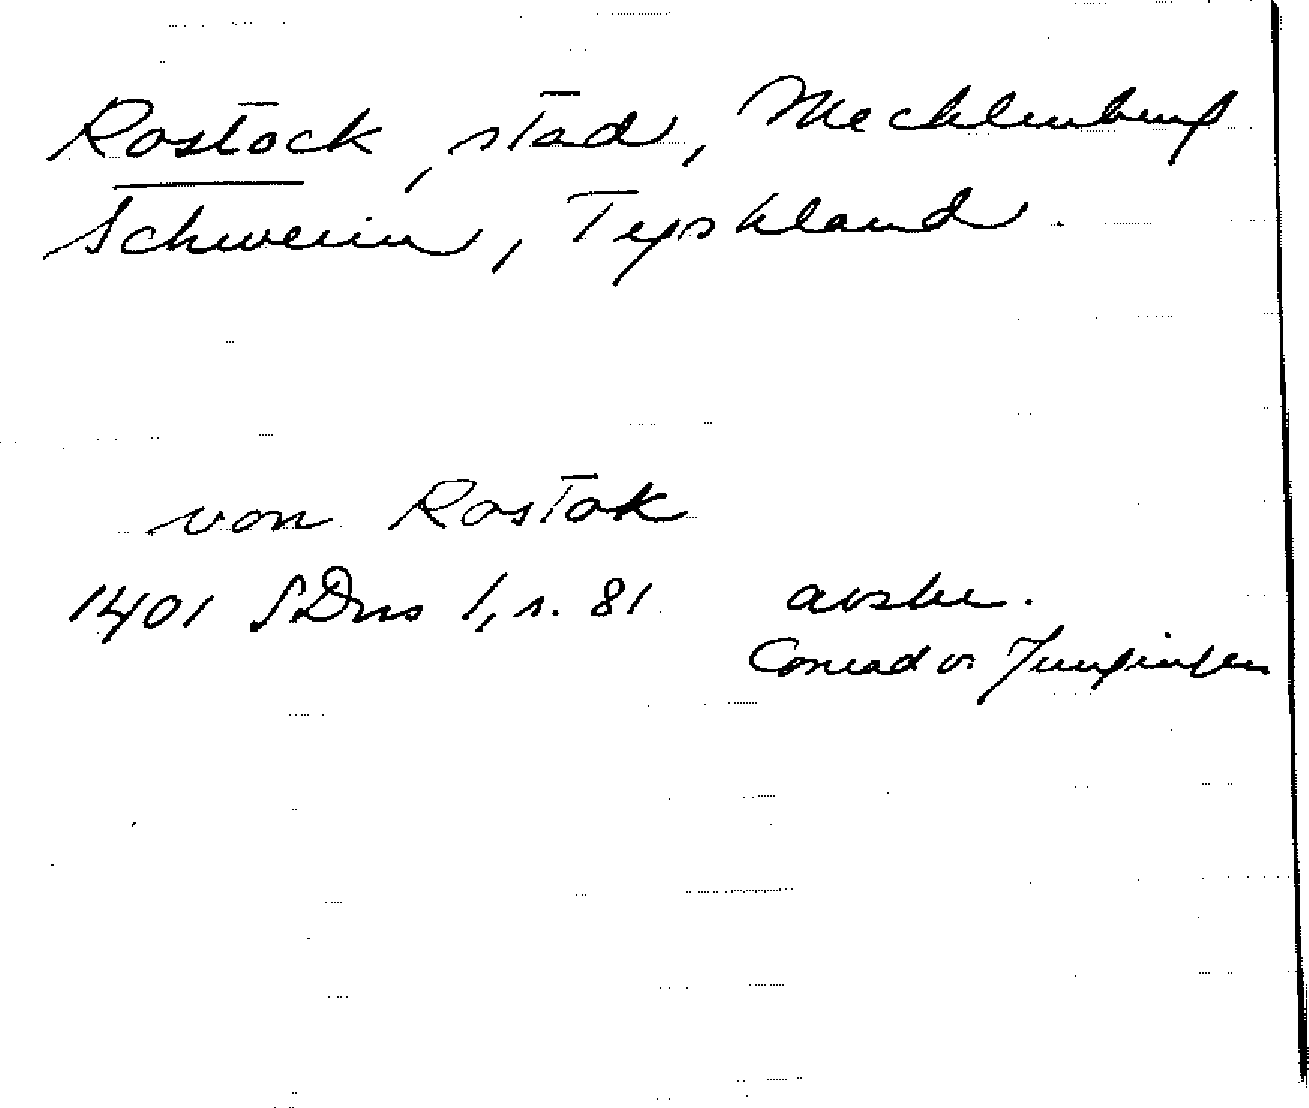 Rostock, stad, Mecklenburg
Schwerin, Tyskland.
von Rostok
1401 SDns 1, s. 81 avskr.
Conrad v. Jungingen